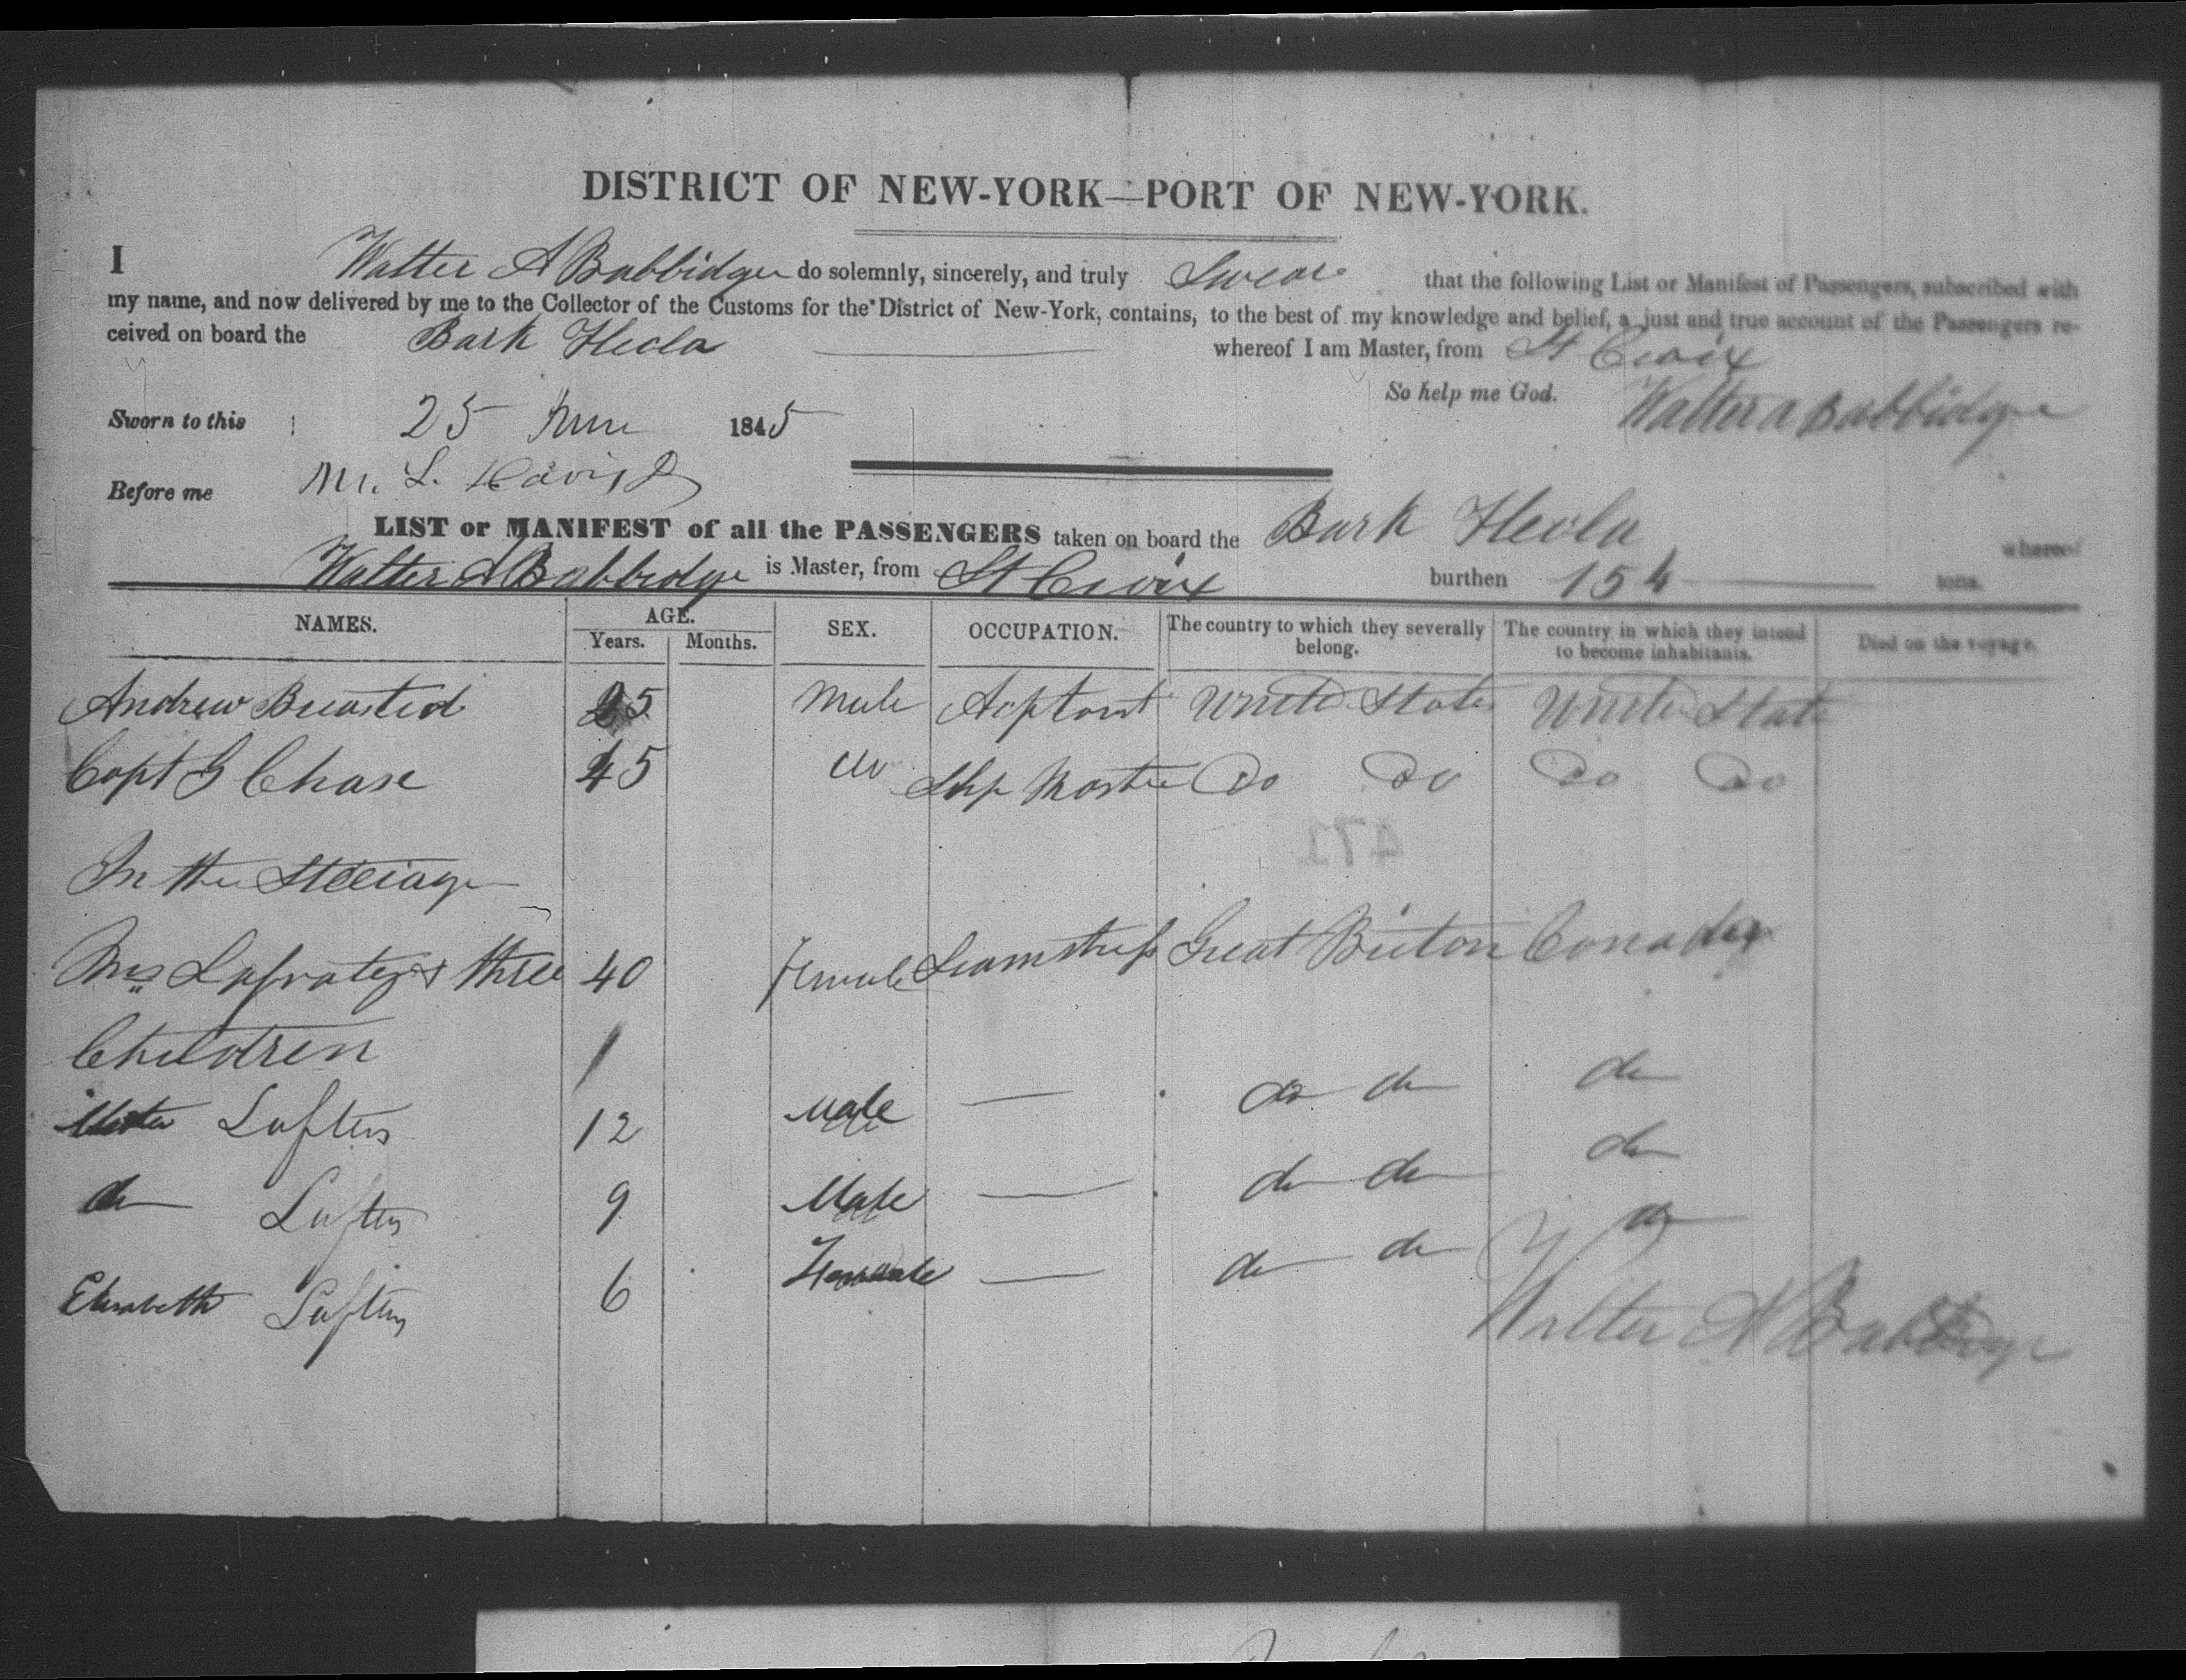 DISTRICT OF NEW-YORK—PORT OF NEW-YORK.
I Walter A Babbidge do solemnly, sincerely, and truly Swear that the following List or Manifest of Passengers, subscribed with
my name, and now delivered by me to the Collector of the Customs for the District of New-York, contains, to the best of my knowledge and belief, a just and true account of the Passengers re-
ceived on board the Bark Hecla whereof I am Master, from St Croix
So help me God. Walter A Babbidge
Sworn to this 25 June 1845
Before me
LIST or MANIFEST of all the PASSENGERS taken on board the Bark Hecla whereof
Walter A Babbidge is Master, from St Croix burthen 154 tons.
NAMES. AGE. Years. Months. SEX. OCCUPATION. The country to which they severally belong. The country in which they intend to become inhabitants. Died on the voyage.
Andrew 25 Male United States United State
Capt G Chase 45 do Shp Master Do Do Do Do
471
In the Steeiage
Mrs & three 40 Female Seamstress Great Briton Canada
Children
Master Loftus 12 Male — do do do
do Loftus 9 Male — do do do
Elisabeth Loftus 6 Female — do do do
Walter A Babbidge